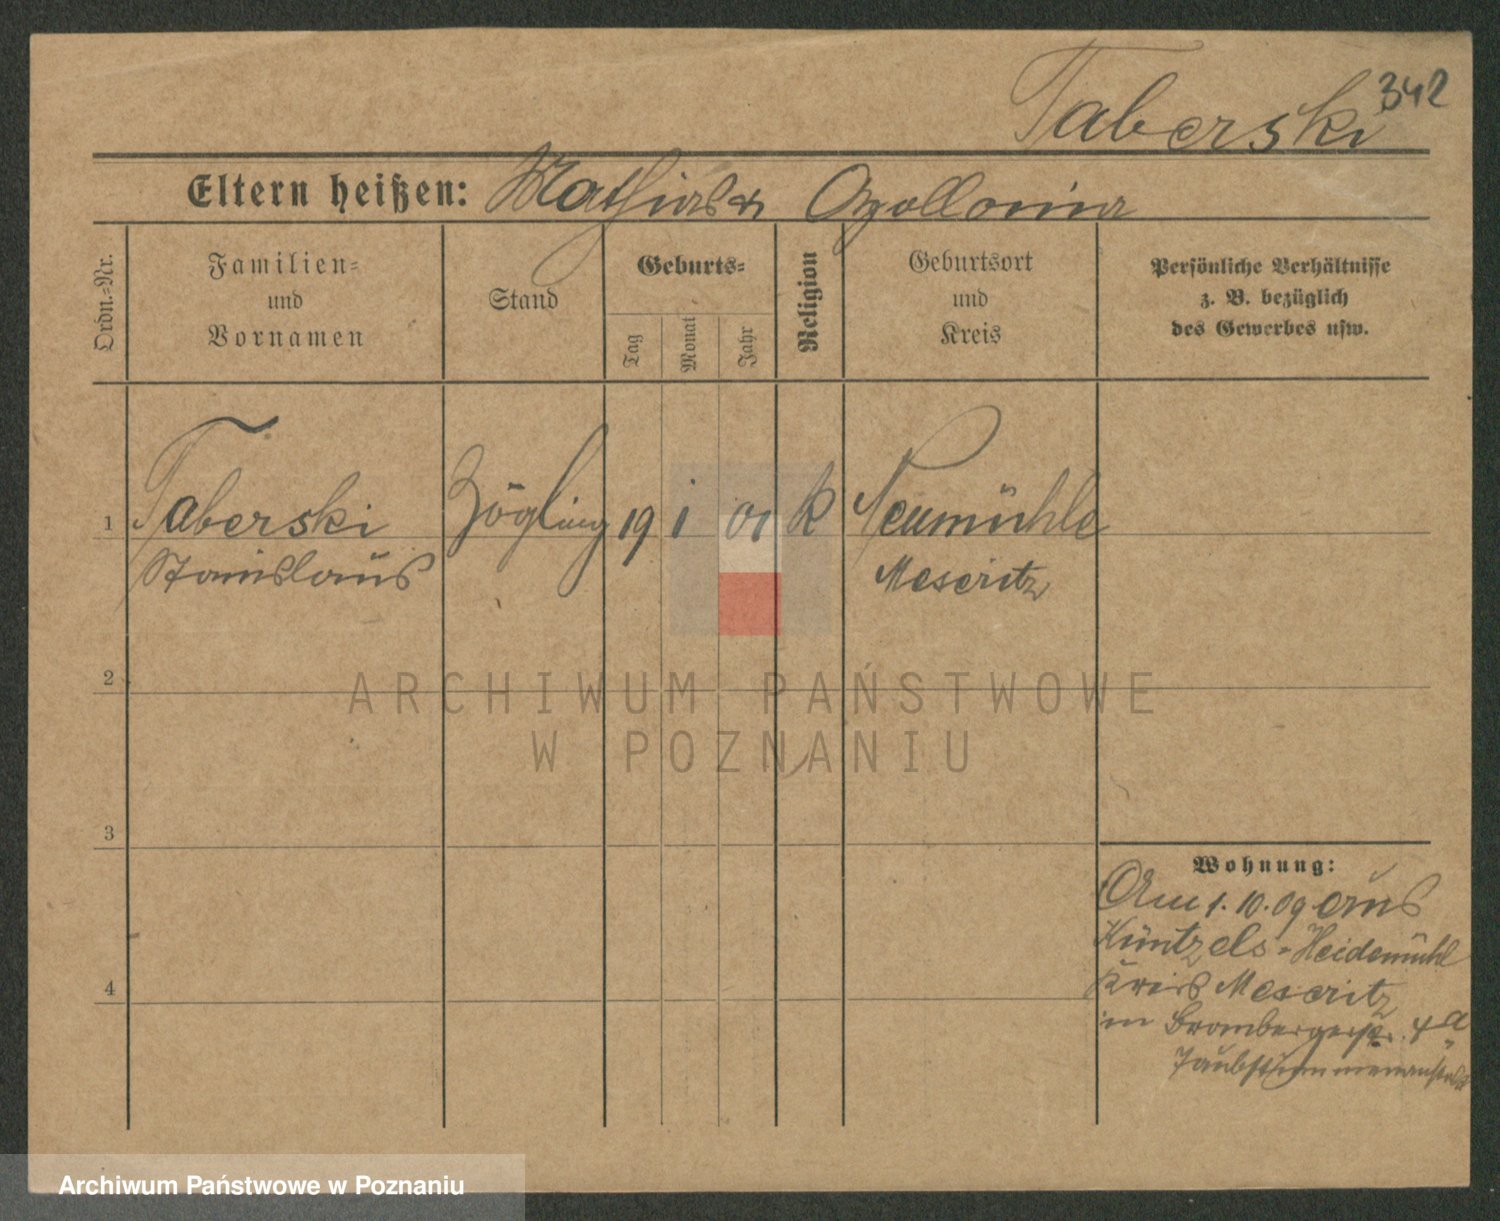 Taberski 342
Eltern heißen: Mathias u Apollonia
Ordn.-Nr.
Familien-
und
Vornamen
Stand
Geburts-
Tag
Monat
Jahr
Religion
Geburtsort
und
Kreis
Persönliche Verhältnisse
z. B. bezüglich
des Gewerbes usw.
1 Taberski Zögling 19 1 01 k Neumühle
Stanislaus Meseritz
2
ARCHIWUM PAŃSTWOWE
W POZNANIU
3
Wohnung:
Am 1.10.09 aus
Küntzels-Heidemühl
Kreis Meseritz
4
in Brombergerstr. 4a
Taubstummenanstalt
Archiwum Państwowe w Poznaniu